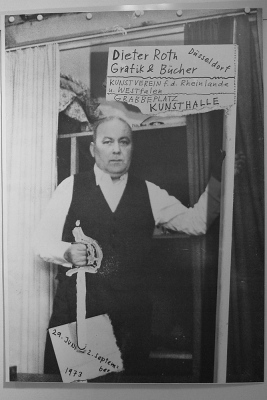 Dieter Roth
Düsseldorf
Grafik & Bücher
KUNSTVEREIN f.d. Rheinlande
u. WESTfalen
GRABBEPLATZ
KUNSTHALLE
29. Juni
2. September
1973